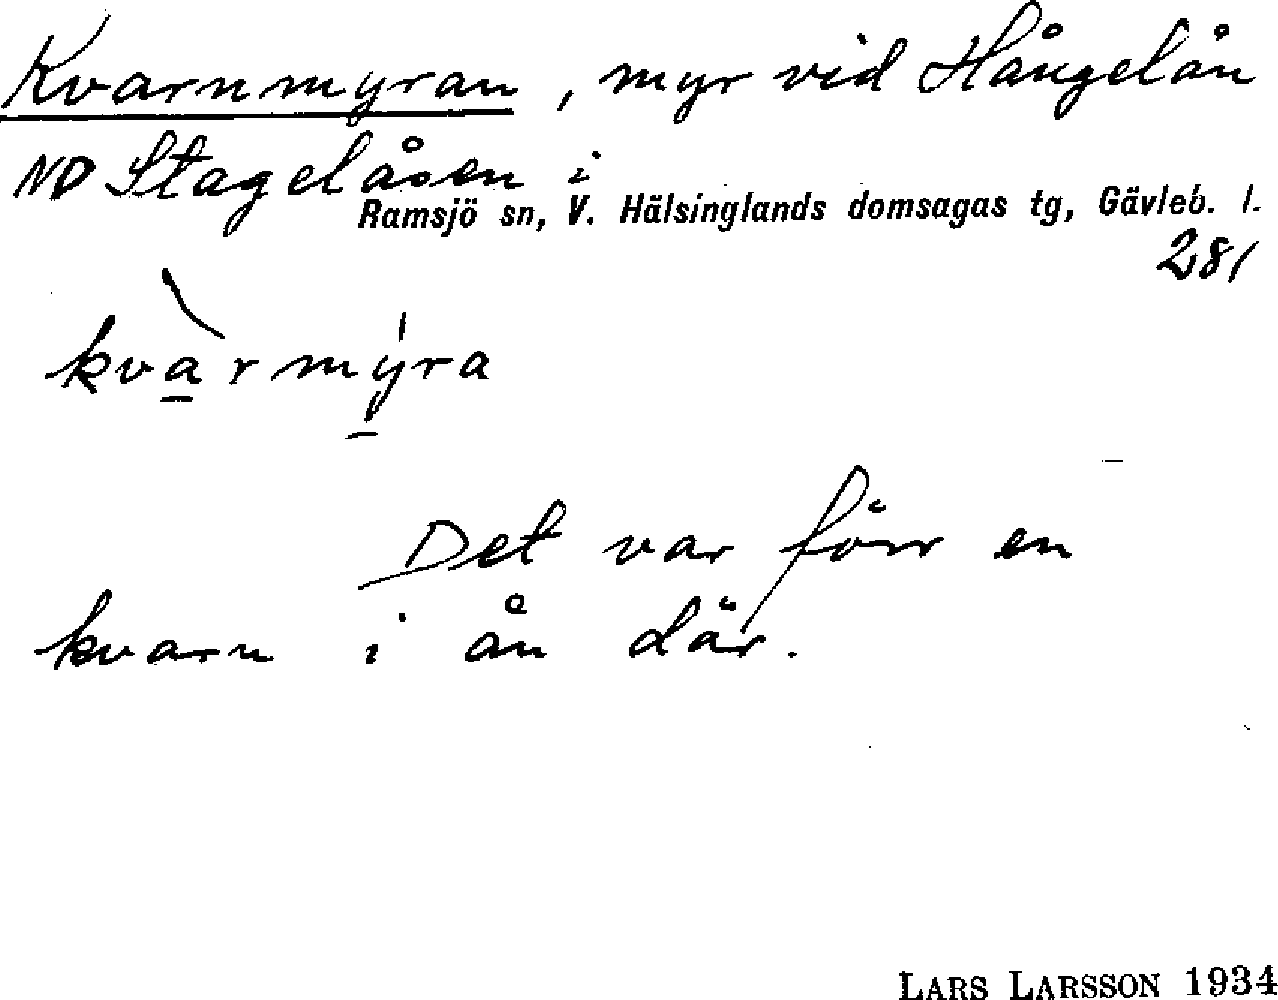 Kvarnmyran, myr vid Hångelån
NO Stagelåsen i
Ramsjö sn, V. Hälsinglands domsagas tg, Gävleb. l.
281
kvàrmýra
Det var förr en
kvarn i ån där.
LARS LARSSON 1934